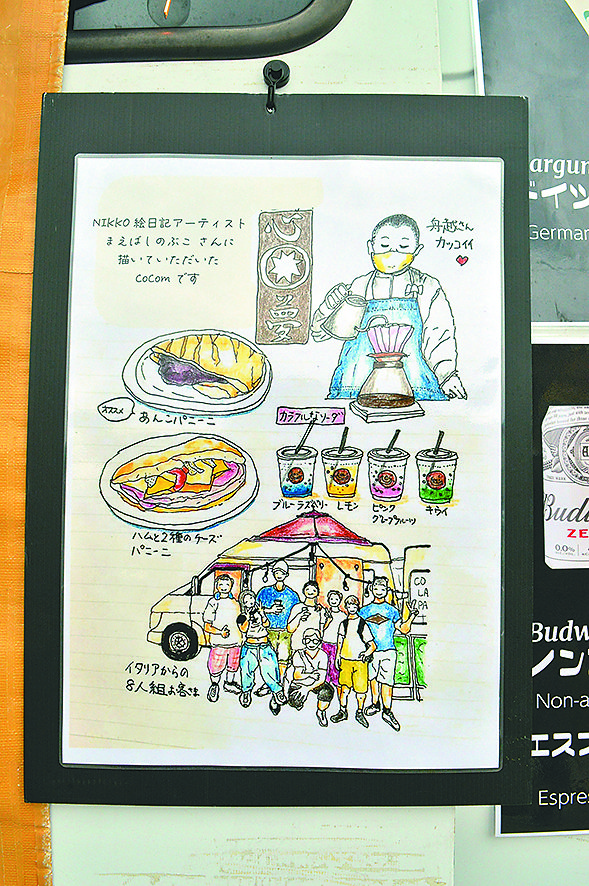 NIKKO 絵日記アーティスト
まえばしのぶこ さんに
描いていただいた
CoCom です
心
夢
舟越さん
カッコイイ
オススメ
あんこパニーニ
カラフルなソーダ
ブルーラズベリー
レモン
ピンク
グレープフルーツ
キウイ
ハムと2種のチーズ
パニーニ
CO
LA
PA
イタリアからの
8人組お客さま
argun
ドイツ
German
Budw
ZE
0.0%
Budw
ノン
Non-a
エスプ
Espres